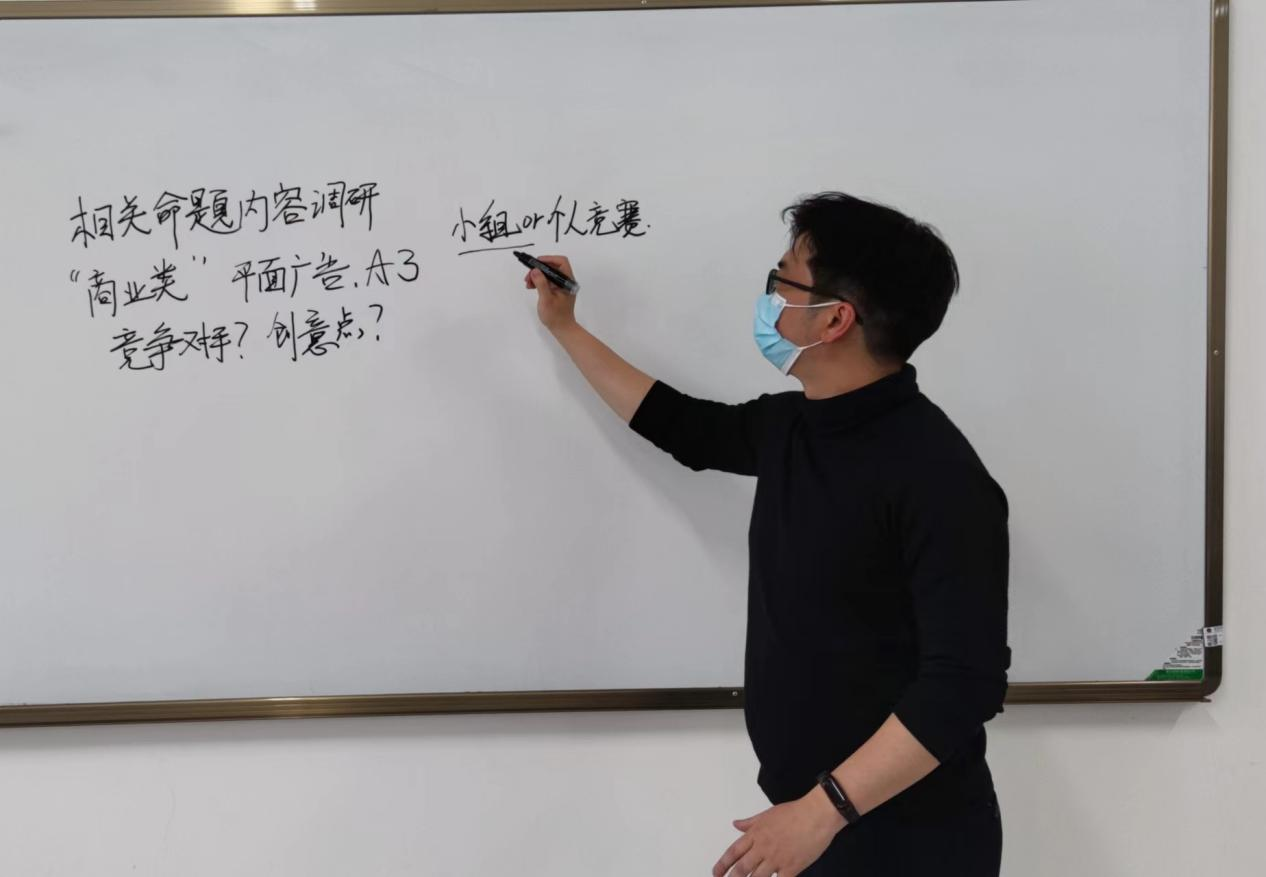 相关命题内容调研
“商业类” 平面广告、A3
竞争对手？创意点？
小组or个人竞赛.